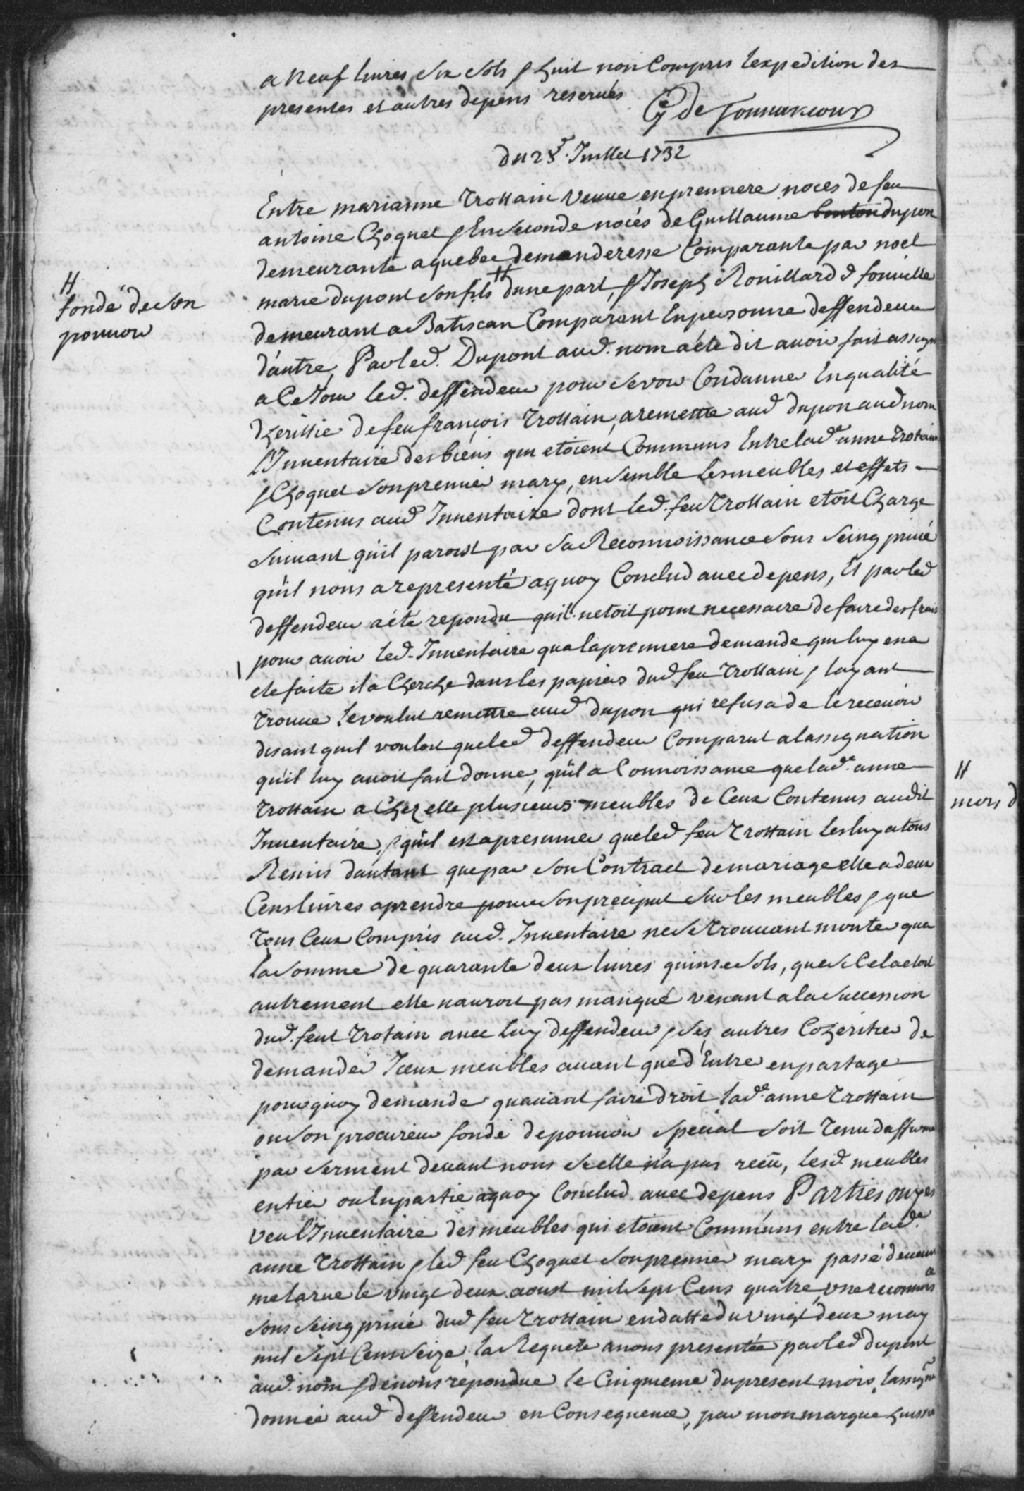 a neuf livres six sols & huit non compris lexpedition des
presentes et autres depens reservés
G de Tonnancour
du 28e Juillet 1732
Entre marianne Trottain veuve en premiere noces de feu
antoine Choquet & En seconde noces de Guillaume dupon
demeurante a quebec demanderesse Comparante par noel
marie dupont son fils H d'une part, & Joseph Rouillard d. fonville
H
fondé de son
pouvoir
demeurant a Batiscan Comparant En personne deffendeur
d'autre, Par led. Dupont aud. nom a été dit avoir fait assigner
a Ce Jour led. deffendeur pour se voir Condanner En qualité
d'heritie de feu françois Trottain, a remettre aud dupon aud nom
l'Inventaire des biens qui etoient Communs Entre lad. anne Trotain
& Choquet son premier mary, ensemble les meubles et effets
Contenus aud Inventaire dont led. feu Trottain etoit Charge
suivant qu'il paroist par sa Reconnoissance sous seing privé
qu'il nous a representé aquoy Conclud avec depens, Et par led
deffendeur a été repondu qu'il n'etoit point necessaire de faire des frais
pour avoir led. Inventaire qu'a la premiere demande qui luy en a
ete faite il a Cherche dans les papiers dud. feu Trottain & layant
trouvé le voulut remettre aud dupon qui refusa de le recevoir
disant quil vouloit que led deffendeur Comparut a lassignation
qu'il luy avoit fait donner, qu'il a Connoissance que lad.e anne
Trottain a Chez elle plusieurs meubles de Ceux Contenus audit
Inventaire, & qu'il est a presumer que led feu Trottain les luy a tous
Remis d'autant que par son Contract de mariage elle a deux
Cens livres a prendre pour son preciput sur les meubles & que
tous Ceux Compris aud. Inventaire ne se trouvant monter qua
la somme de quarante deux livres quinse sols, que si Cela etoit
autrement elle n'auroit pas manqué venant a la succession
dud. feut Trotain avec luy deffendeur & ses autres Coheritier de
demander Iceux meubles avant que d'Entrer en partage
pourquoy demande quavant faire droit lad.e anne Trottain
ou son procureur fondé de pouvoir special soit tenu daffirmer
par serment devant nous si elle n'a pas reçu, lesd. meubles
entier ou En partie aquoy Conclud avec depens Parties ouyes
veu l'Inventaire des meubles qui etoient Communs entre lad.e
anne Trottain & led. feu Choquet son premier mary passé devant
me larue le vingt deux aoust mil sept Cens quatre une reconnois
sous seing privé dud. feu Trottain en datte du vingt deux may
mil sept Cens seize, la Requete a nous presentée par led dupont
aud. nom & de nous repondue le Cinquieme du present mois, lassig.on
donnée aud deffendeur en Consequence, par monmarque huissier
H
mois d